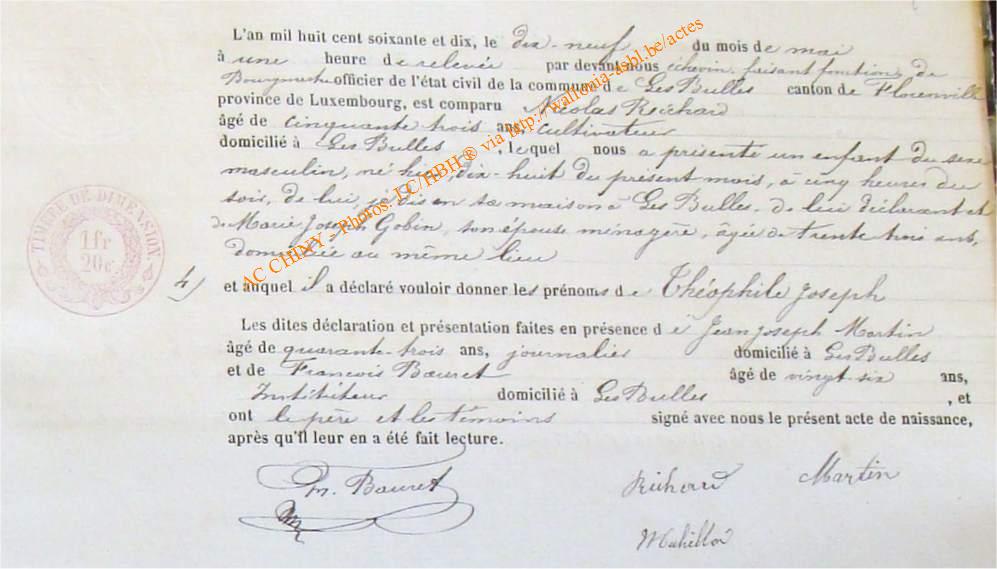 L'an mil huit cent soixante et dix, le dix-neuf du mois de mai
à une heure de relevée par devant nous échevin faisant fonctions de
Bourgmestre officier de l'état civil de la commune de Les Bulles canton de Florenville
province de Luxembourg, est comparu Nicolas Richard
âgé de cinquante trois ans, cultivateur
domicilié à Les Bulles, lequel nous a présenté un enfant du sexe
masculin, né hier, dix-huit du présent mois, à cinq heures du
soir, de lui, en sa maison à Les Bulles, de lui déclarant et
de Marie Joseph Gobin, son épouse ménagère, âgée de trente trois ans,
domiciliée au même lieu
4)
et auquel il a déclaré vouloir donner les prénoms de Théophile Joseph
Les dites déclaration et présentation faites en présence de Jean Joseph Martin
âgé de quarante-trois ans, journalier domicilié à Les Bulles
et de François Bauret âgé de vingt-six ans,
Instituteur domicilié à Les Bulles, et
ont le père et les témoins signé avec nous le présent acte de naissance,
après qu'il leur en a été fait lecture.
Bauret
Richard
Martin
TIMBRE DE DIMENSION
1 fr
20 c
AC CHINY - Photos: J.C/HBH ® via http://wallonia-asbl.be/actes